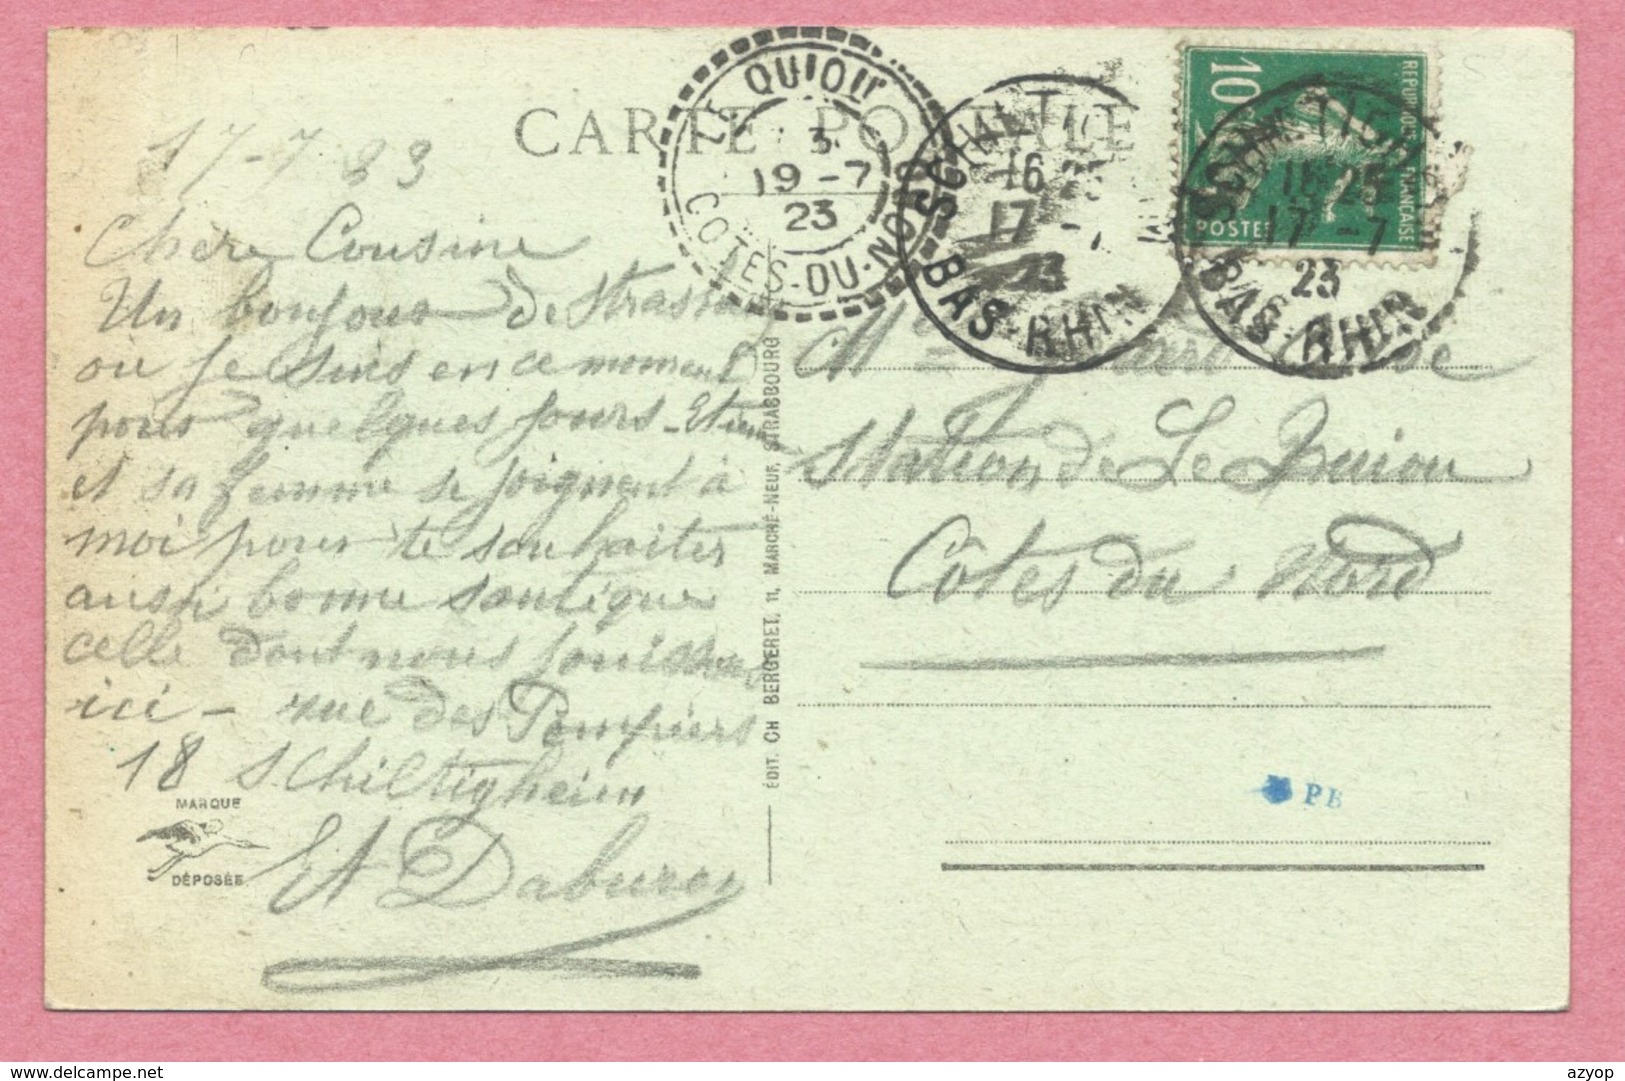 CARTE POSTALE
17-7 23
Chère Cousine
Un bonjour de Strasbourg
où je suis en ce moment
pour quelques jours - Etienne
et sa femme se joignent à
moi pour te souhaiter
aussi bonne santé que
celle dont nous jouissons
ici - rue des Pompiers
18 Schiltigheim
MARQUE
DÉPOSÉE
ÉDIT. CH BERGERET, 11, MARCHÉ-NEUF, STRASBOURG
LE QUIOU
3
19-7
23
COTES-DU-NORD
16
17 -7
23
BAS-RHIN
16 25
17-7
23
BAS-RHIN
10c
REPUBLIQUE FRANÇAISE
POSTES
Station de Le Quiou
Côtes du Nord
PB
azyop